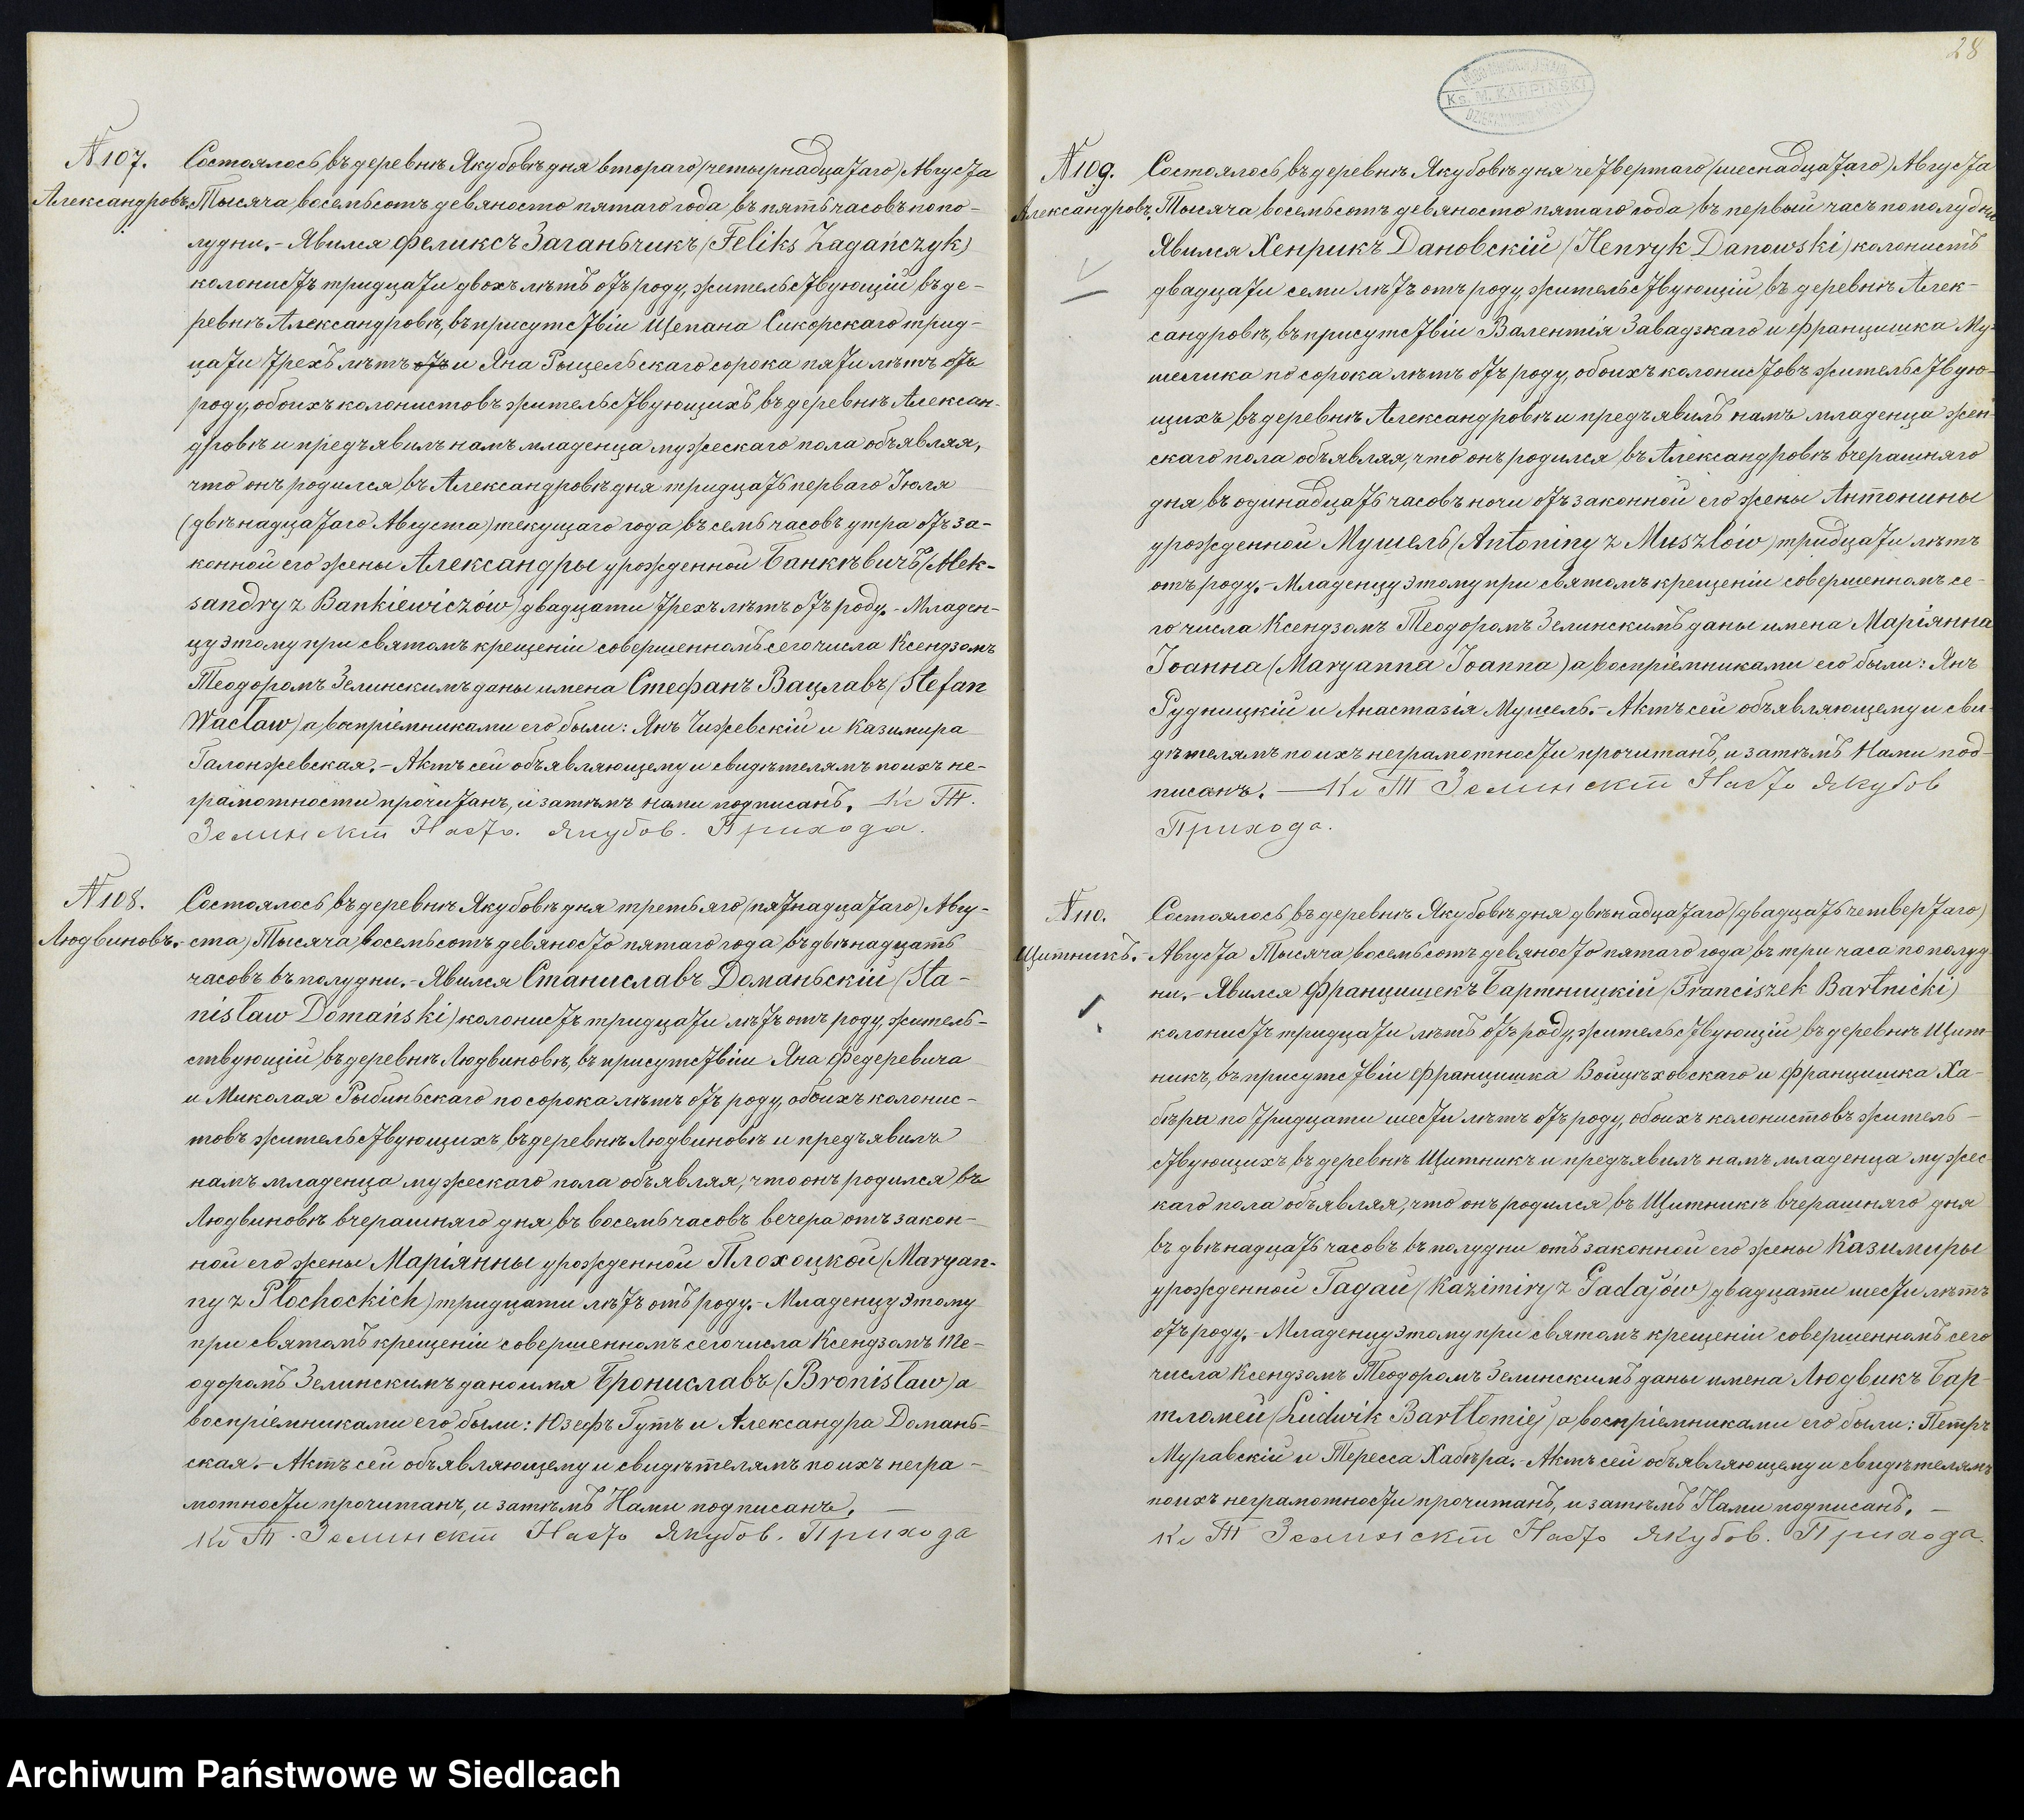 №107.
Александровъ.
Состоялось въ деревнѣ Якубовѣ дня втораго (четырнадцатаго) Августа
Тысяча восемьсотъ девяносто пятаго года въ пять часовъ по по-
лудни. - Явился Феликсъ Заганьчикъ (Feliks Zagańczyk)
колонистъ тридцати двохъ лѣтъ отъ роду, жительствующій въ де-
ревнѣ Александровѣ, въ присутствіи Щепана Сикорскаго трид-
цати трехъ лѣтъ отъ и Яна Рыцельскаго сорока пяти лѣтъ отъ
роду, обоихъ колонистовъ жительствующихъ въ деревнѣ Алексан-
дровѣ и предъявилъ намъ младенца мужескаго пола объявляя,
что онъ родился въ Александровѣ дня тридцать перваго Іюля
(двѣнадцатаго Августа) текущаго года въ семь часовъ утра отъ за-
конной его жены Александры урожденной Банкѣвичъ (Alek-
sandry z Bankiewiczów) двадцати трехъ лѣтъ отъ роду. - Младен-
цу этому при святомъ крещеніи совершенномъ сего числа Ксендзомъ
Теодоромъ Зелинскимъ даны имена Стефанъ Вацлавъ (Stefan
Wacław) а воспріемниками его были: Янъ Чижевскій и Казимира
Галонжевская. - Актъ сей объявляющему и свидѣтелямъ по ихъ не-
грамотности прочитанъ, и затѣмъ нами подписанъ. Кс Т.
Зелинскій Насто. Якубов. Прихода.
№108.
Людвиновъ. -
Состоялось въ деревнѣ Якубовѣ дня третьяго (пятнадцатаго) Авгу-
ста) Тысяча восемьсотъ девяносто пятаго года въ двѣнадцать
часовъ въ полудни. - Явился Станиславъ Доманьскій (Sta-
nisław Domański) колонистъ тридцати лѣтъ отъ роду, житель-
ствующій въ деревнѣ Людвиновѣ, въ присутствіи Яна Федеревича
и Миколая Рыбиньскаго по сорока лѣтъ отъ роду, обоихъ колонис-
товъ жительствующихъ въ деревнѣ Людвиновѣ и предъявилъ
намъ младенца мужескаго пола объявляя, что онъ родился въ
Людвиновѣ вчерашняго дня въ восемь часовъ вечера отъ закон-
ной его жены Маріянны урожденной Плохоцкой (Maryan-
ny z Płochockich) тридцати лѣтъ отъ роду. - Младенцу этому
при святомъ крещеніи совершенномъ сего числа Ксендзомъ Те-
одоромъ Зелинскимъ дано имя Брониславъ (Bronisław) а
воспріемниками его были: Юзефъ Гутъ и Александра Домань-
ская. - Актъ сей объявляющему и свидѣтелямъ по ихъ негра-
мотности прочитанъ, и затѣмъ Нами подписанъ. —
Кс Т. Зелинскій Насто Якубов. Прихода
28
Ks. M. KARPIŃSKI
№109.
Александровъ.
Состоялось въ деревнѣ Якубовѣ дня четвертаго (шеснадцатаго) Августа
Тысяча восемьсотъ девяносто пятаго года въ первый часъ по полудни
Явился Хенрикъ Дановскій (Henryk Danowski) колонистъ
двадцати семи лѣтъ отъ роду, жительствующій въ деревнѣ Алек-
сандровѣ, въ присутствіи Валентія Завадзкаго и Францишка Му-
шелика по сорока лѣтъ отъ роду, обоихъ колонистовъ жительствую-
щихъ въ деревнѣ Александровѣ и предъявилъ намъ младенца жен-
скаго пола объявляя, что онъ родился въ Александровѣ вчерашняго
дня въ одинадцать часовъ ночи отъ законной его жены Антонины
урожденной Мушель (Antoniny z Muszlów) тридцати лѣтъ
отъ роду. - Младенцу этому при святомъ крещеніи совершенномъ се-
го числа Ксендзомъ Теодоромъ Зелинскимъ даны имена Маріянна
Іоанна (Maryanna Joanna) а воспріемниками его были: Янъ
Рудницкій и Анастазія Мушель. - Актъ сей объявляющему и сви-
дѣтелямъ по ихъ неграмотности прочитанъ, и затѣмъ Нами под-
писанъ. — Кс Т Зелинскій Насто Якубов
Прихода.
№110.
Щитникъ. -
Состоялось въ деревнѣ Якубовѣ дня двѣнадцатаго (двадцать четвертаго)
Августа Тысяча восемьсотъ девяносто пятаго года въ три часа по полуд-
ни. - Явился Францишекъ Бартницкій (Franciszek Bartnicki)
колонистъ тридцати лѣтъ отъ роду, жительствующій въ деревнѣ Щит-
никъ, въ присутствіи Францишка Войцѣховскаго и Францишка Ха-
бѣра по тридцати шести лѣтъ отъ роду, обоихъ колонистовъ житель-
ствующихъ въ деревнѣ Щитникъ и предъявилъ намъ младенца мужес-
каго пола объявляя, что онъ родился въ Щитникѣ вчерашняго дня
въ двѣнадцать часовъ въ полудни отъ законной его жены Казимиры
урожденной Гадай (Kazimiry z Gadajów) двадцати шести лѣтъ
отъ роду. - Младенцу этому при святомъ крещеніи совершенномъ сего
числа Ксендзомъ Теодоромъ Зелинскимъ даны имена Людвикъ Бар-
тломей (Ludwik Bartłomiej) а воспріемниками его были: Петръ
Муравскій и Тересса Хабѣра. - Актъ сей объявляющему и свидѣтелямъ
по ихъ неграмотности прочитанъ, и затѣмъ Нами подписанъ. -
Кс Т Зелинскій Насто Якубов. Прихода.
Archiwum Państwowe w Siedlcach